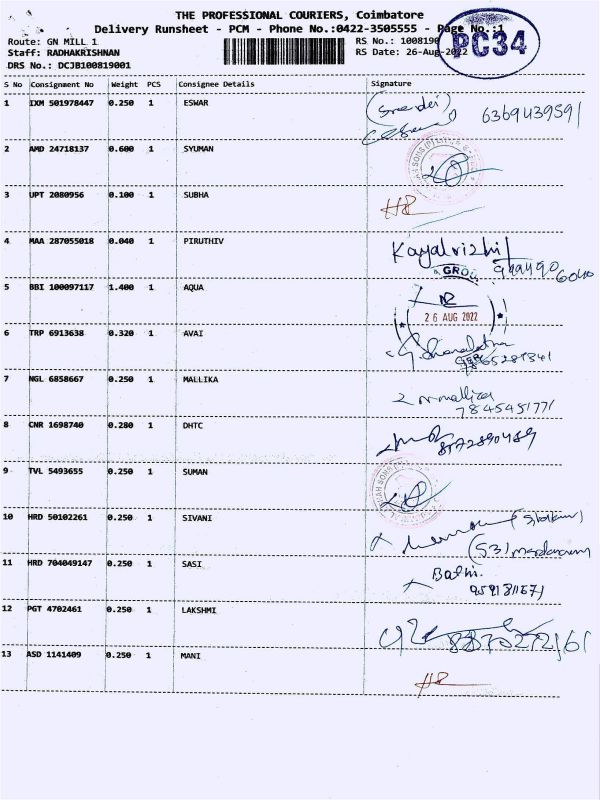 THE PROFESSIONAL COURIERS, Coimbatore
Delivery Runsheet - PCM - Phone No.:0422-3505555 - Page No.:1
Route: GN MILL 1 RS No.: 1008190
Staff: RADHAKRISHNAN RS Date: 26-Aug-2022
DRS No.: DCJB100819001
PC34
S No Consignment No Weight PCS Consignee Details Signature
1 IXM 501978447 0.250 1 ESWAR 6369439591
2 AMD 24718137 0.600 1 SYUMAN
3 UPT 2080956 0.100 1 SUBHA
4 MAA 287055018 0.040 1 PIRUTHIV Kayalvizhi
GROU
5 BBI 100097117 1.400 1 AQUA
26 AUG 2022
6 TRP 6913638 0.320 1 AVAI
7 NGL 6858667 0.250 1 MALLIKA
7845451771
8 CNR 1698740 0.280 1 DHTC
9 TVL 5493655 0.250 1 SUMAN
10 HRD 50102261 0.250 1 SIVANI
11 HRD 704049147 0.250 1 SASI
12 PGT 4702461 0.250 1 LAKSHMI
13 ASD 1141409 0.250 1 MANI